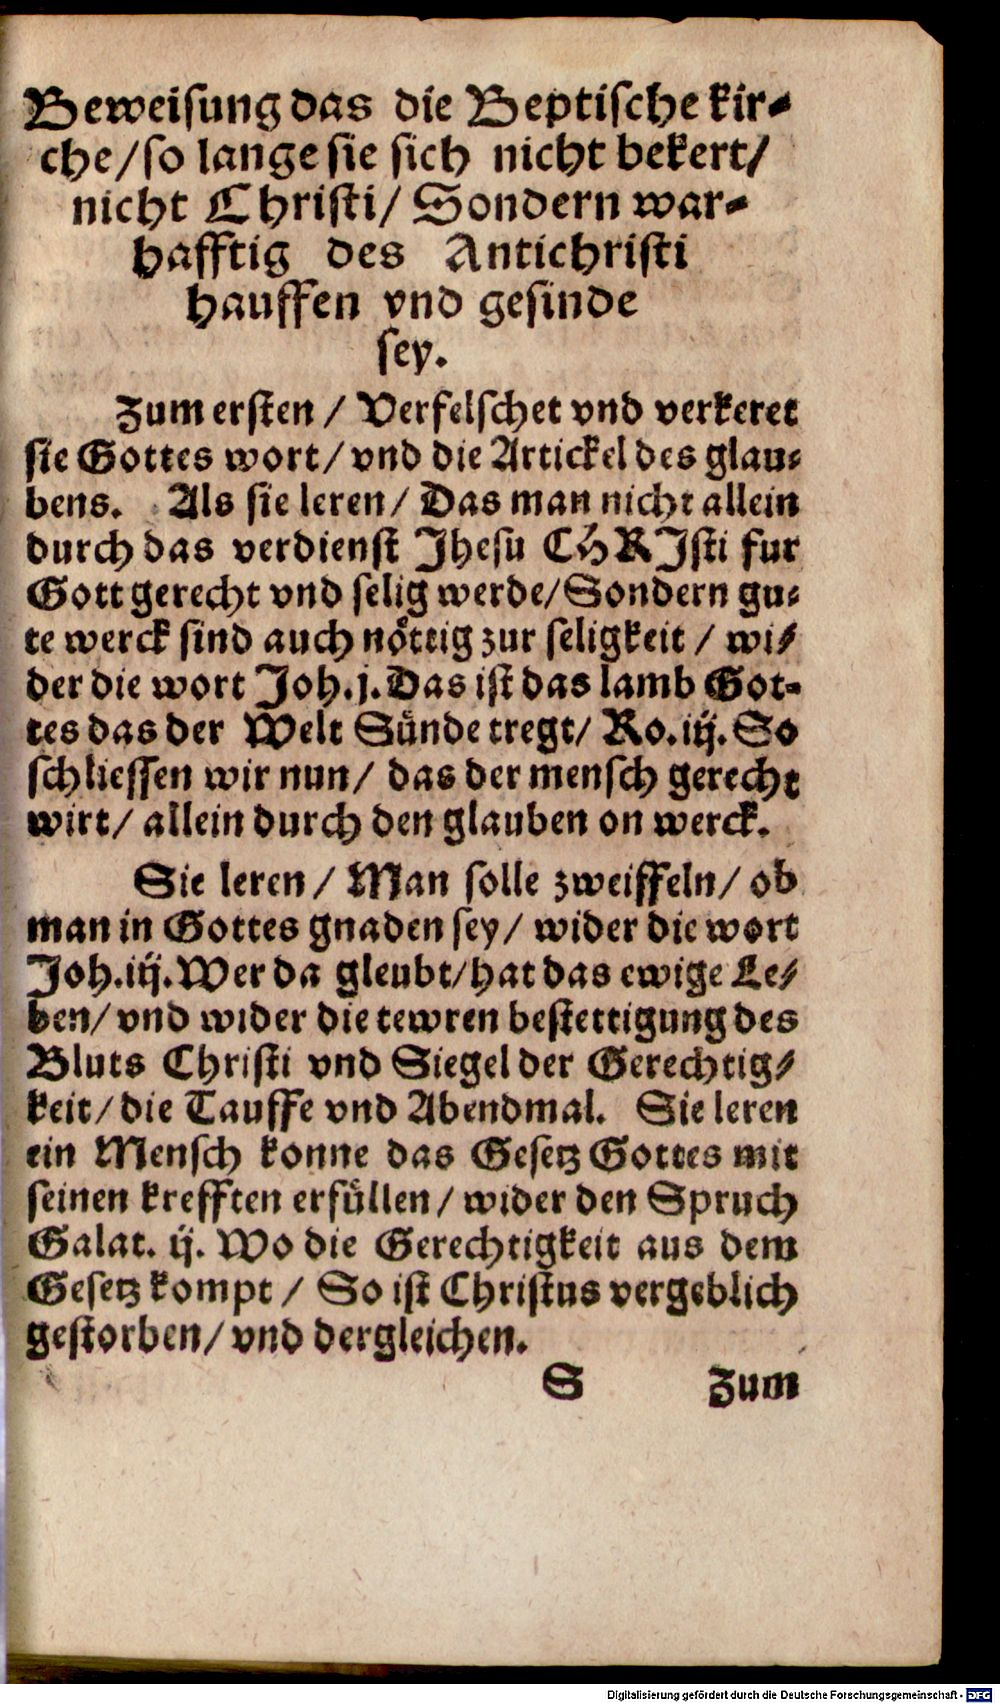 Beweisung das die Beptische kir⸗
che/so lange sie sich nicht bekert/
nicht Christi/ Sondern war⸗
hafftig des Antichristi
hauffen vnd gesinde
sey.
Zum ersten / Verfelschet vnd verkeret
sie Gottes wort/ vnd die Artickel des glau⸗
bens. Als sie leren/ Das man nicht allein
durch das verdienst Jhesu CHRJsti fur
Gott gerecht vnd selig werde/Sondern gu⸗
te werck sind auch nöttig zur seligkeit / wi⸗
der die wort Joh.j.Das ist das lamb Got⸗
tes das der Welt Sünde tregt/ Ro.iij. So
schliessen wir nun/ das der mensch gerecht
wirt/ allein durch den glauben on werck.
Sie leren / Man solle zweiffeln/ ob
man in Gottes gnaden sey/ wider die wort
Joh.iij.Wer da gleubt/hat das ewige Le⸗
ben/ vnd wider die tewren bestettigung des
Bluts Christi vnd Siegel der Gerechtig⸗
keit/ die Tauffe vnd Abendmal. Sie leren
ein Mensch konne das Gesetz Gottes mit
seinen krefften erfüllen/ wider den Spruch
Galat. ij. Wo die Gerechtigkeit aus dem
Gesetz kompt / So ist Christus vergeblich
gestorben/ vnd dergleichen.
S Zum
Digitalisierung gefördert durch die Deutsche Forschungsgemeinschaft - DFG